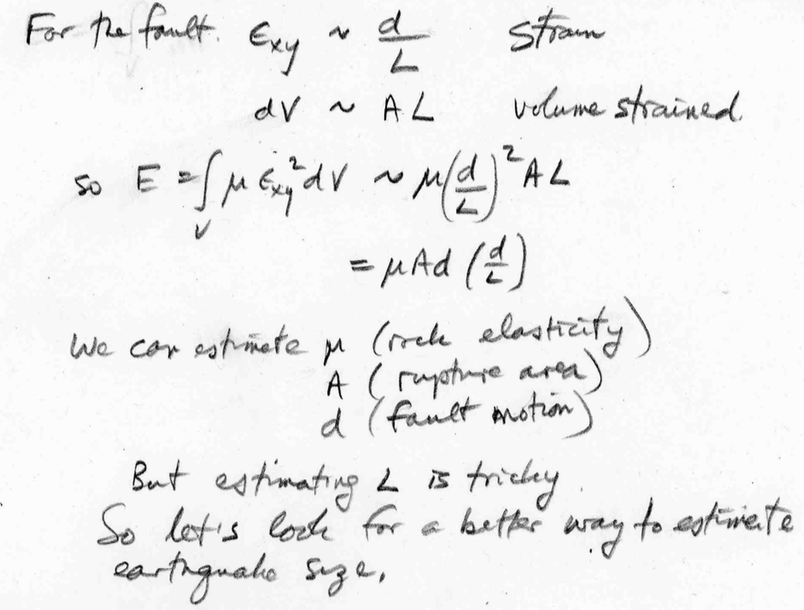 For the fault. ϵxy ~ d/L strain
dV ~ AL volume strained.
so E = ∫V μ ϵxy² dV ~ μ(d/L)² AL
= μAd (d/L)
We can estimate μ (rock elasticity)
A (rupture area)
d (fault motion)
But estimating L is tricky.
So let's look for a better way to estimate
earthquake size.